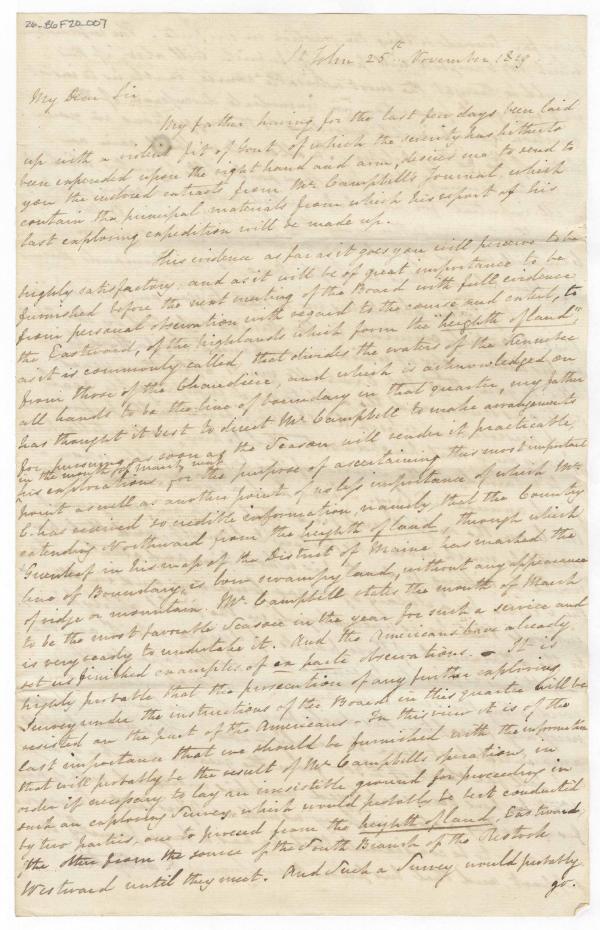 26-B6F20-007
St John 25th November 1819.
My Dear Sir
My father having for the last few days been laid
up with a violent fit of Gout, of which the severity has hitherto
been expended upon the right hand and arm, desires me to send to
you the inclosed extracts from Mr Campbell's Journal, which
contain the principal materials from which his report of his
last exploring expedition will be made up.
This evidence as far as it goes you will perceive to be
highly satisfactory, and as it will be of great importance to be
furnished before the next meeting of the Board with full evidence
from personal observation with regard to the course and extent, to
the Eastward, of the highlands which form the "heighth of land",
as it is commonly called, that divides the waters of the Kennebec
from those of the Chaudière, and which is acknowledged on
all hands to be the line of boundary in that quarter, my father
has thought it best to direct Mr Campbell to make arrangements
for pursuing as soon as the Season will render it practicable,
in the month of March next
his explorations, for the purpose of ascertaining this most important
point as well as another point of no less importance of which Mr
C. has received so credible information, namely, that the Country
extending Northward from the heighth of land, through which
Greenleaf in his map of the District of Maine has marked the
line of Boundary, is low swampy land, without any appearance
of ridge or mountain. Mr Campbell states the month of March
to be the most favorable Season in the year for such a service and
is very ready to undertake it. And the Americans have already
set us finished examples of ex parte observations. - It is
highly probable that the prosecution of any further exploring
Survey under the instructions of the Board in this quarter will be
resisted on the part of the Americans. In this view it is of the
last importance that we should be furnished with the information
that will probably be the result of Mr Campbell's operations, in
order if necessary to lay an irresistible ground for proceeding in
such an exploring Survey, which would probably be best conducted
by two parties, one to proceed from the heighth of land, Eastward,
the other from the source of the South Branch of the Ristook
Westward until they meet. And Such a Survey would probably
go.